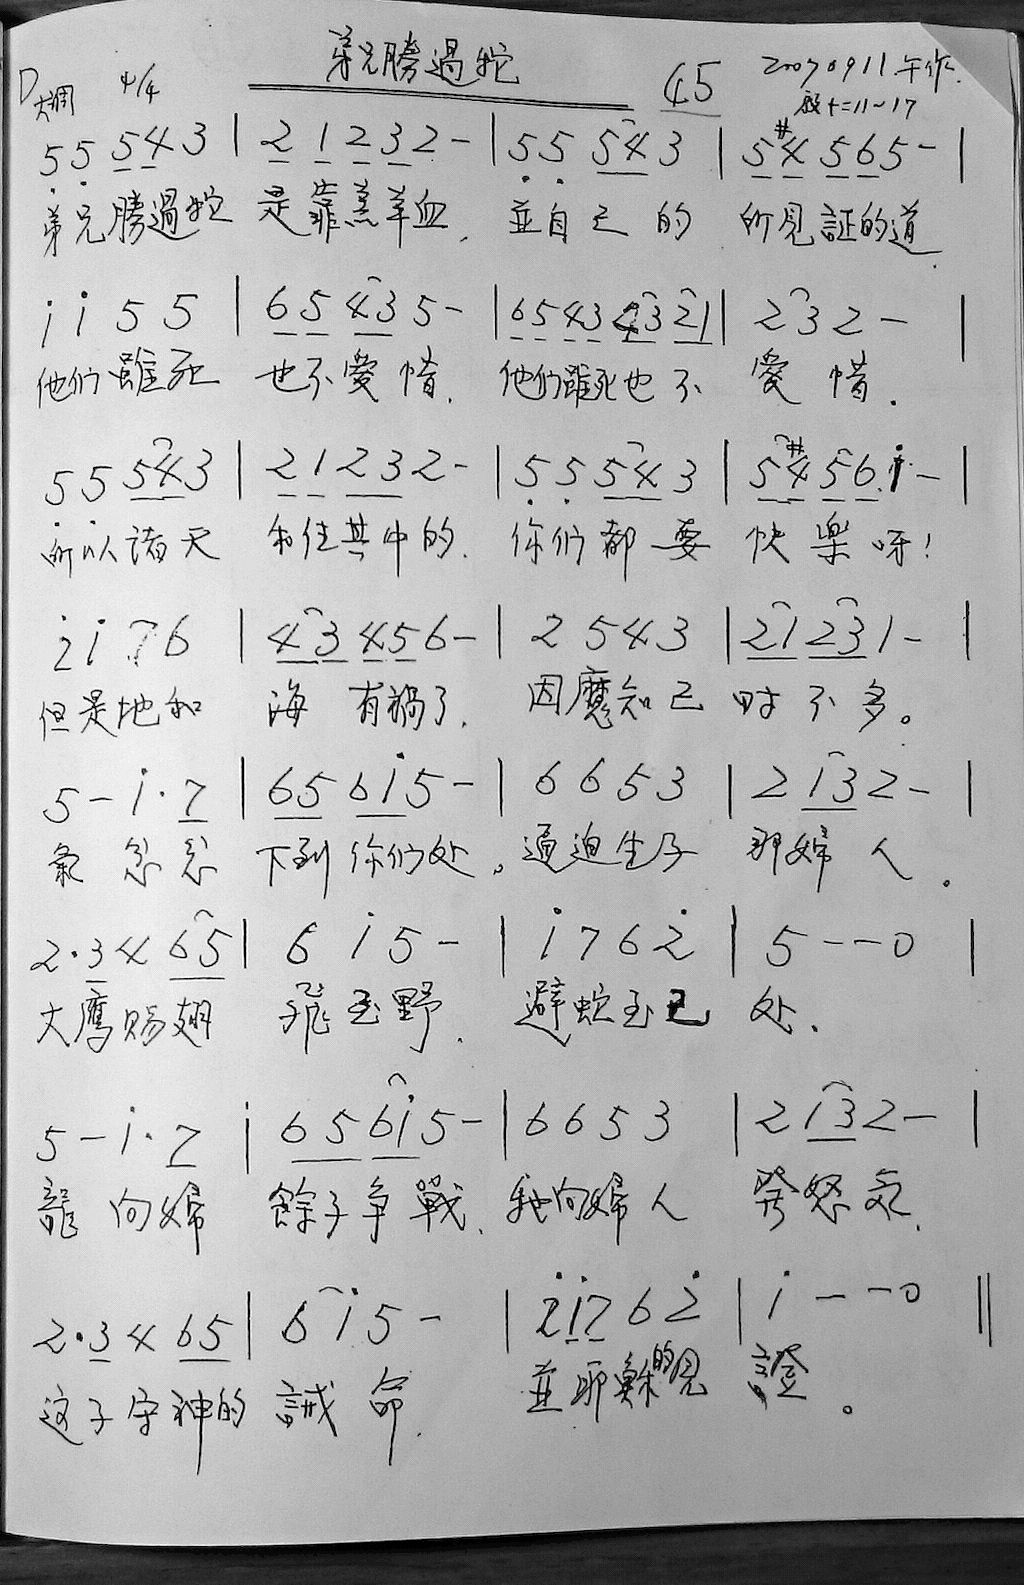 弟兄勝過蛇 45 20070911午作.
D大調 4/4 啟十二11~17
5 5 5 4 3 | 2 1 2 3 2 - | 5 5 5 4 3 | 5 #4 5 6 5 - |
弟兄勝過蛇 是靠羔羊血, 並自己的 所見証的道
i i 5 5 | 6 5 4 3 5 - | 6 5 4 3 4 3 2 1 | 2 3 2 - |
他們雖死 也不愛惜. 他們雖死也不 愛惜.
5 5 5 4 3 | 2 1 2 3 2 - | 5 5 5 4 3 | 5 #4 5 6 i - |
所以諸天 和住其中的. 你們都要 快樂呀!
2 i 7 6 | 4 3 4 5 6 - | 2 5 4 3 | 2 1 2 3 1 - |
但是地和 海有禍了. 因魔知己 时不多。
5 - i · 7 | 6 5 6 i 5 - | 6 6 5 3 | 2 1 3 2 - |
氣忿忿 下到你们处。逼迫生子 那婦人.
2 · 3 4 6 5 | 6 i 5 - | i 7 6 2 | 5 - - 0 |
大鷹賜翅 飛至野. 避蛇至己 处.
5 - i · 7 | 6 5 6 i 5 - | 6 6 5 3 | 2 1 3 2 - |
龍向婦 餘子争戰. 他向婦人 癸怒气.
2 · 3 4 6 5 | 6 i 5 - | 2 i 7 6 2 | i - - 0 ||
这子守神的 誡命. 並耶穌的見 證。